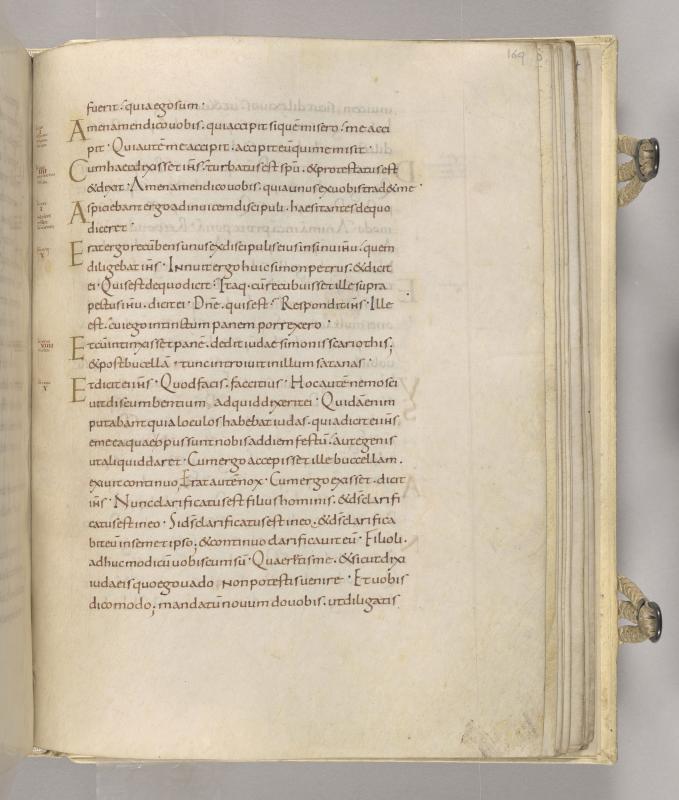 169
fuerit. quia ego sum.
Amen amen dico vobis. qui accipit si quē misero. me acci
pit. Qui autē me accipit. accipit eū qui me misit.
Cum haec dixisset ihs̄. turbatus est spū. & protestatus est
& dixit. Amen amen dico vobis. quia unus ex vobis trad& me.
Aspiciebant ergo ad invicem discipuli. haesitantes de quo
diceret.
Erat ergo recūbens unus ex discipulis eius in sinu ihū. quem
diligebat ihs̄. Innuit ergo huic simon petrus. & dicit
ei. Quis est de quo dicit. Itaq. cū recubuisset ille supra
pectus ihū. dicit ei. Dn̄e. quis est. Respondit ihs̄. Ille
est. cui ego intinctum panem porrexero.
Et cū intinxisset panē. dedit iudae simonis scariothis;
& post bucellā. tunc introivit in illum satanas.
Et dicit ei ihs̄. Quod facis. fac citius. Hoc autē nemo sci
vit discumbentium ad quid dixerit ei. Quidā enim
putabant quia loculos habebat iudas. quia dicit ei ihs̄
eme ea quae opus sunt nobis ad diem festū. aut egenis
ut aliquid daret. Cum ergo accepisset ille buccellam.
exivit continuo. Erat autē nox. Cum ergo exisset. dicit
ihs̄. Nunc clarificatus est filius hominis. & ds̄ clarifi
catus est in eo. Si ds̄ clarificatus est in eo. & ds̄ clarifica
bit eū in semetipso; & continuo clarificavit eū. Filioli.
adhuc modicū vobiscum sū. Quaeretis me. & sicut dixi
iudaeis quo ego vado non potestis venire. Et vobis
dico modo; mandatū novum do vobis. ut diligatis